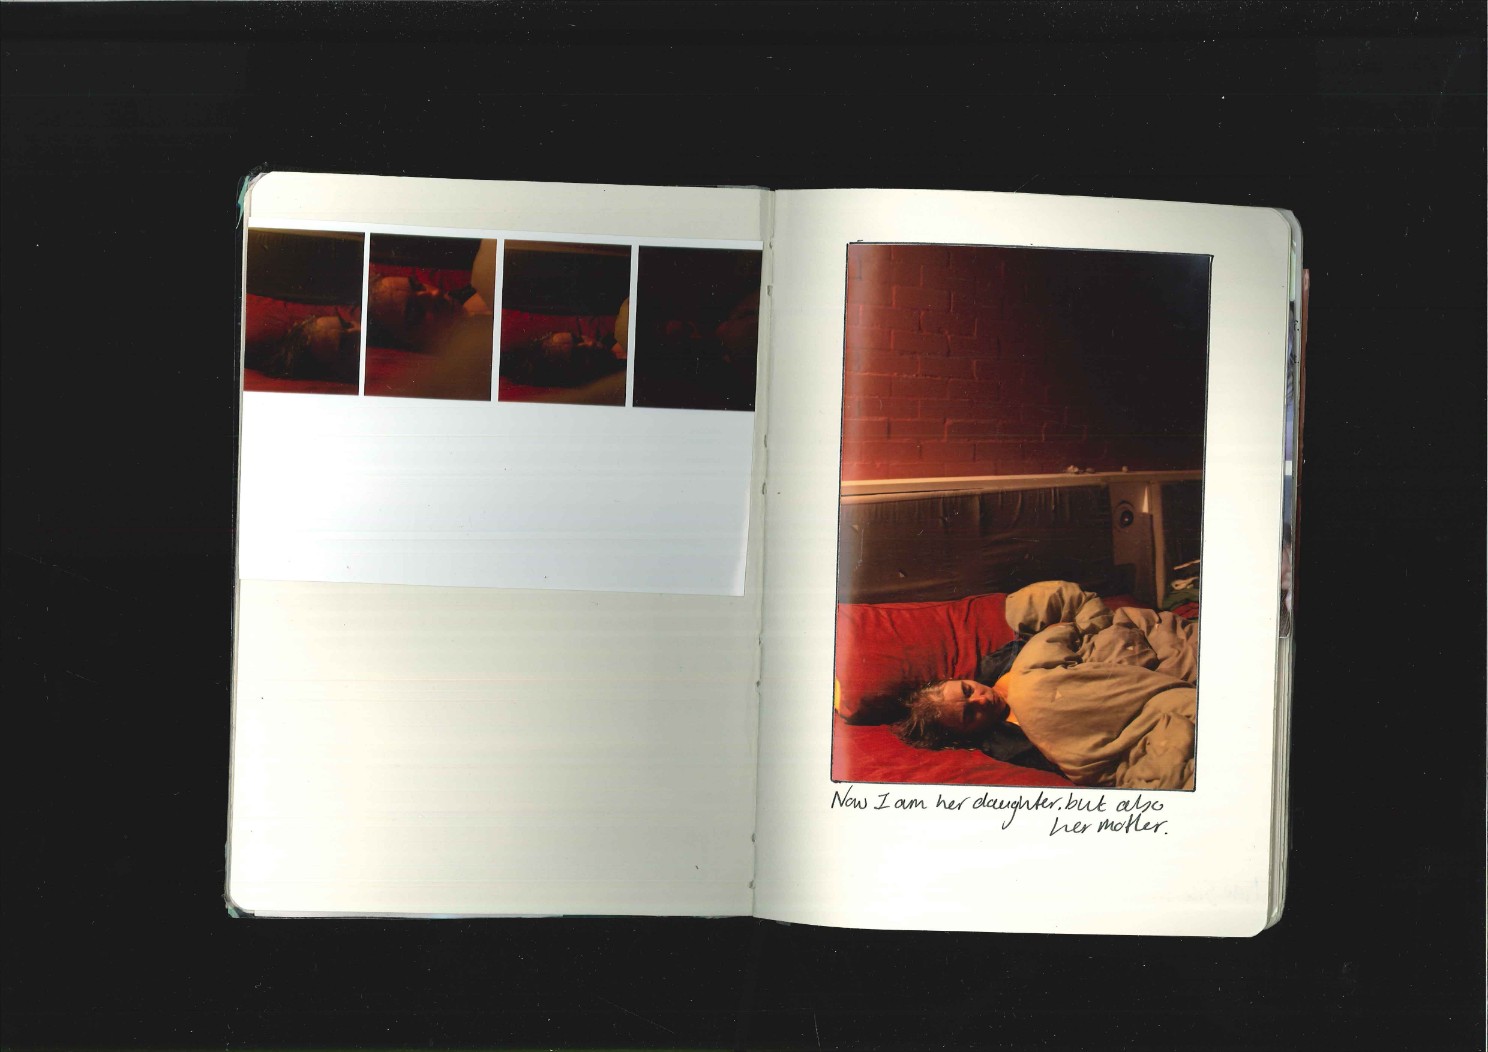 Now I am her daughter. but also
her mother.